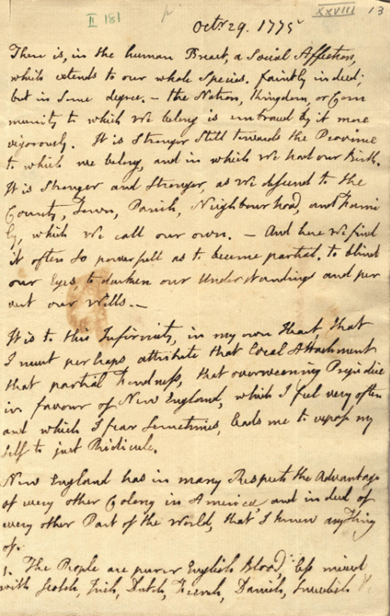 II 181
XXVIII 13
Octr. 29. 1775
There is, in the human Breast, a social Affection,
which extends to our whole Species. faintly indeed;
but in some degree. — the Nation, Kingdom, or Com
munity to which we belong is embraced by it more
vigorously. It is Stronger Still towards the Province
to which we belong, and in which We had our Birth.
It is Stronger and Stronger, as We descend to the
County, Town, Parish, Neighbourhood, and Fami
ly, which We call our own. — And here We find
it often so powerfull as to become partial, to blind
our Eyes to darken our Understandings and per
vert our Wills. —
It is to this Infirmity, in my own Heart, that
I must perhaps attribute that local Attachment
that partial Fondness, that overweening Prejudice
in favour of New England, which I feel very often
and which I fear Sometimes, leads me to expose my
self to just Ridicule.
New England has in many Respects the Advantage
of every other Colony in America, and indeed of
every other Part of the World, that I know any Thing
of.
1. The People are purer English Blood, less mixed
with Scotch, Irish, Dutch, French, Danish, Sweedish